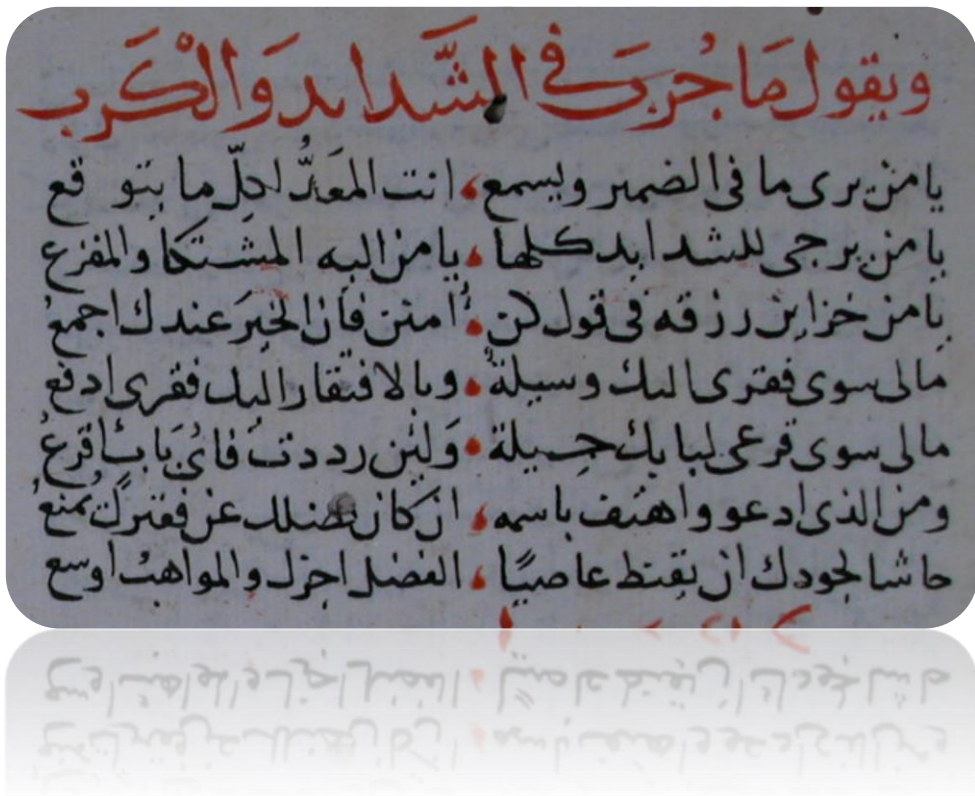 ويقول ما جُرب في الشَّدايد وَالْكَرب
يا من يرى ما في الضمير ويسمع، انت المعَدُّ لكلّ ما يتوقع
يا من يرجى للشدايد كلها، يا من اليه المشتكا والمفزع
يا من خزاين رزقه في قول كن، أمنن فان الخيرَ عندك اجمعُ
مالى سوى فقترى اليك وسيلةٌ، وبالافتقار اليك فقرى ادفع
مالى سوى قرعى لبابك حيلة، وَلئِن رددتُ فاىُّ بَابٍ اقرعُ
ومن الذى ادعو واهتف باسمه، ان كان فضلك عن فقيركَ يُمنعُ
حاشا لجودك ان تقنط عاصيًا، الفضل اجزل والمواهبُ اوسع